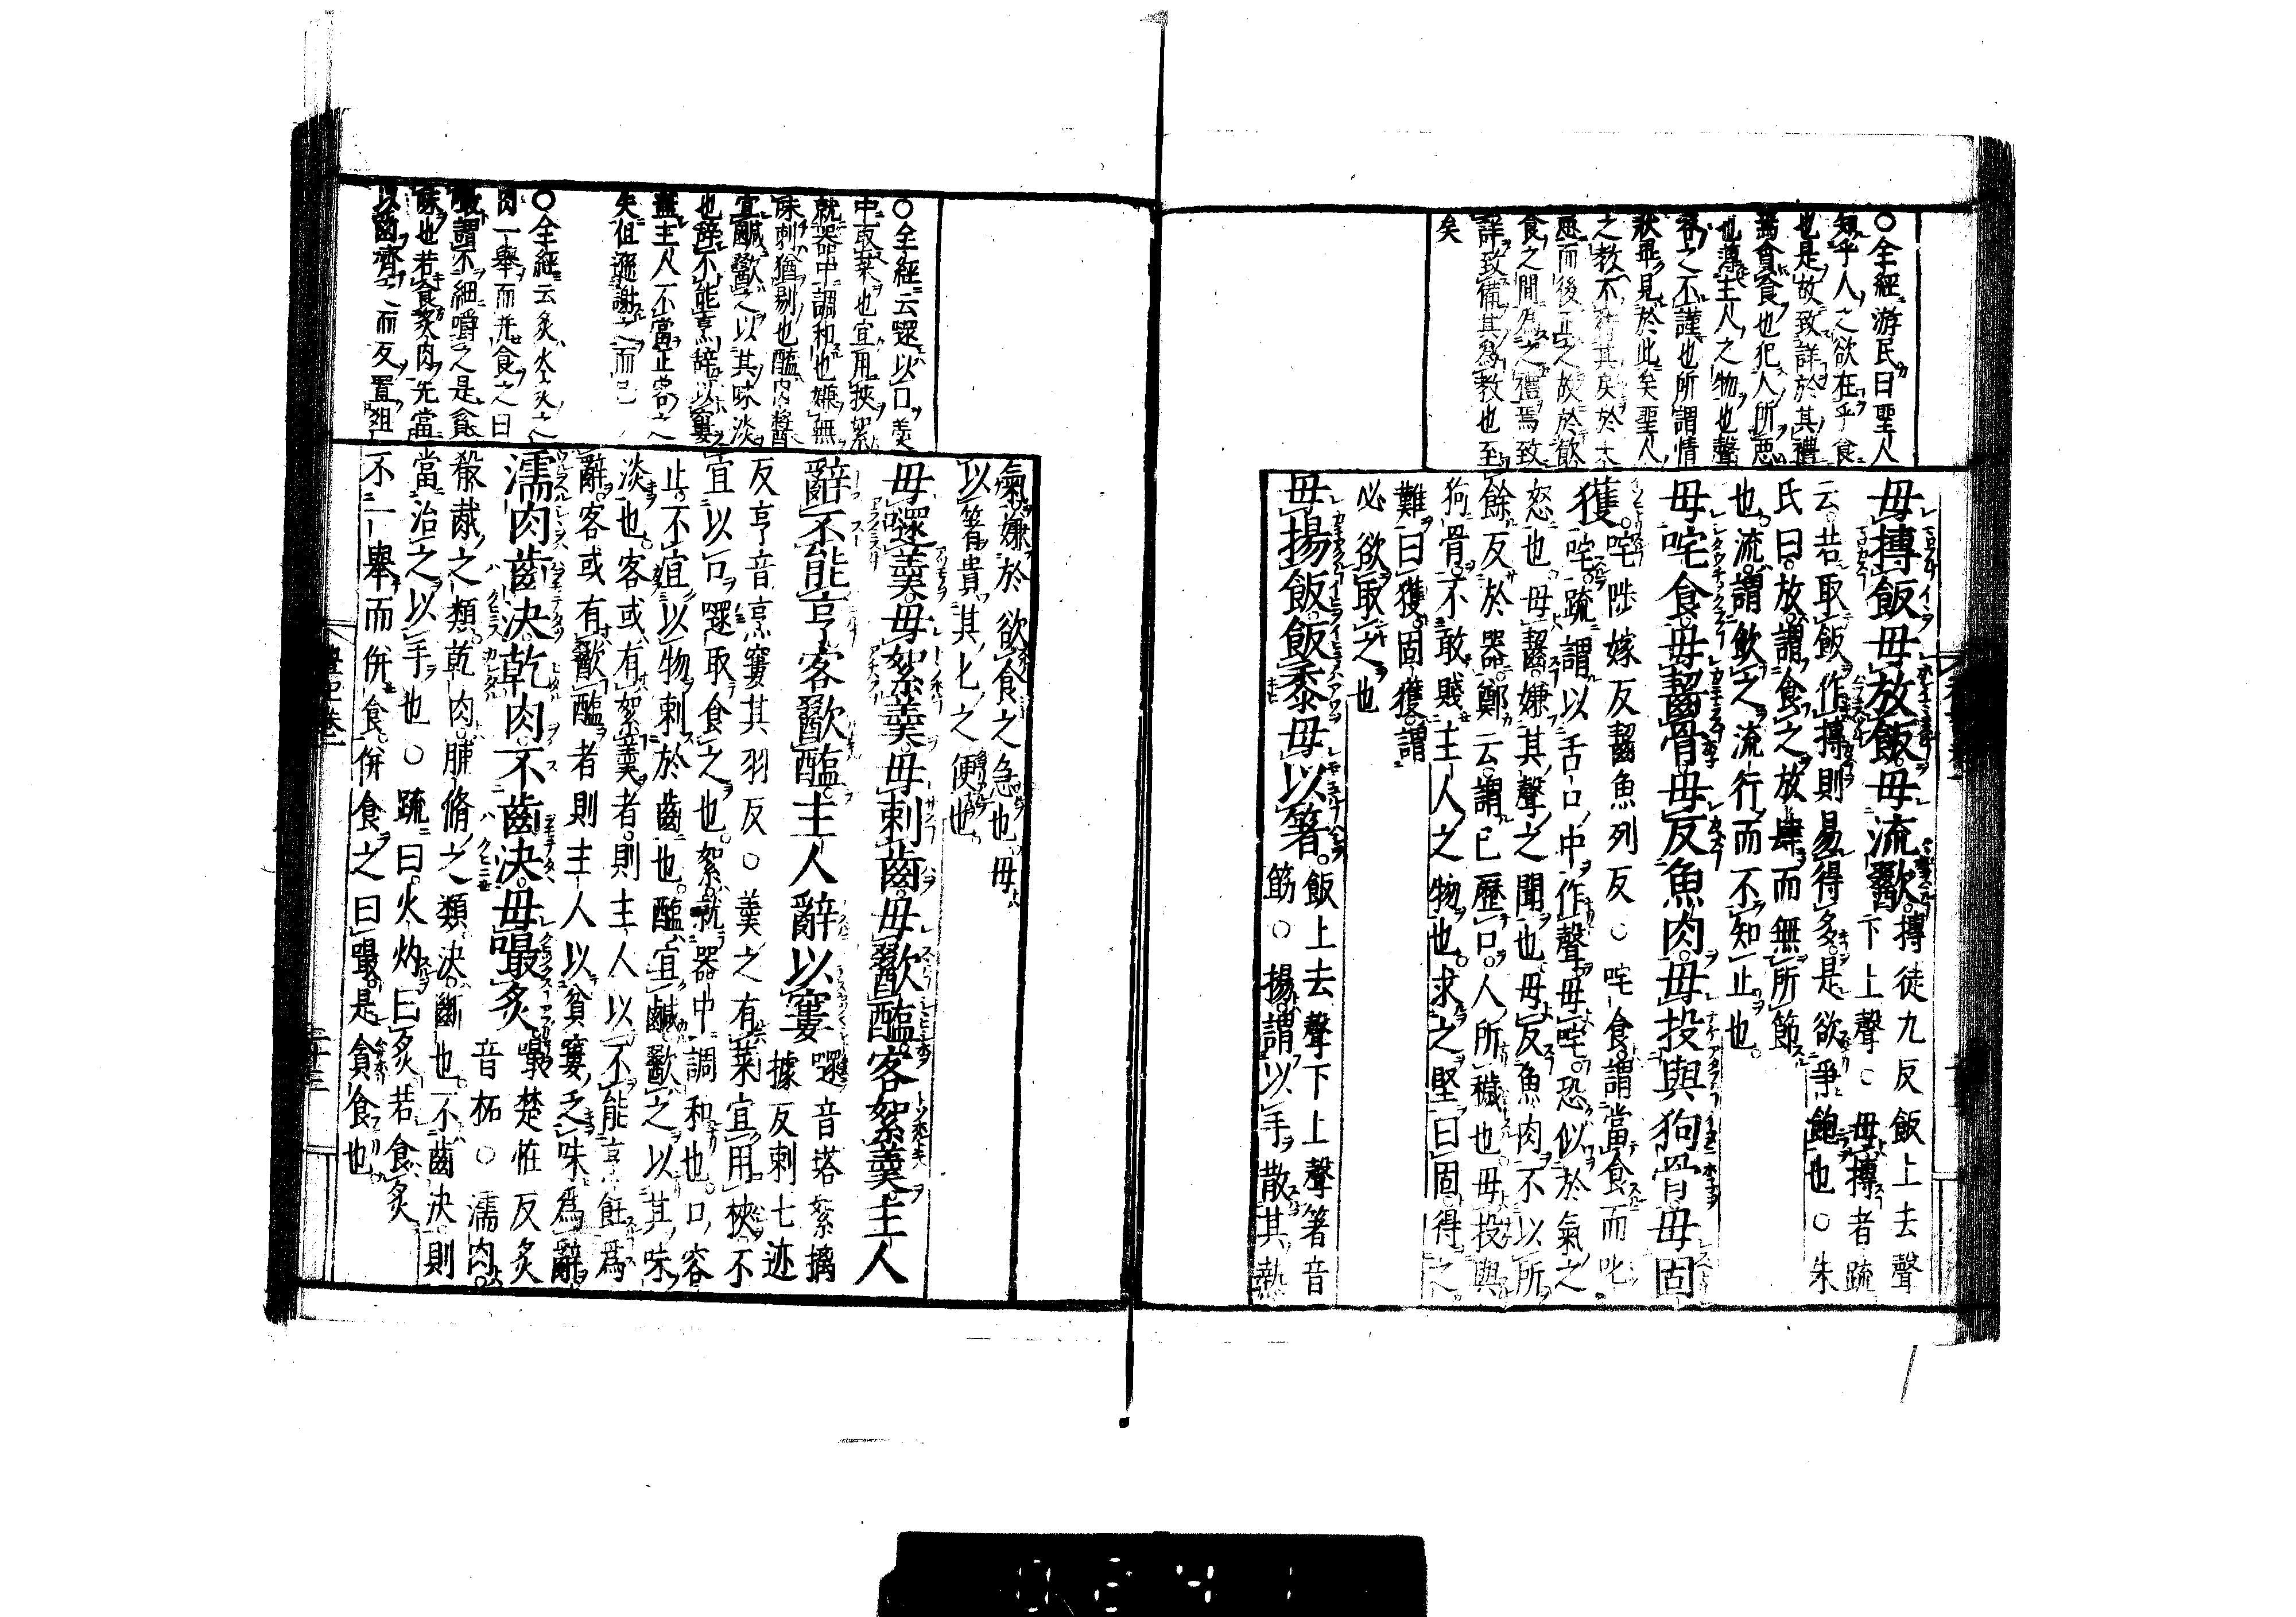 ○全經游氏曰聖人
知乎人之欲在乎食
也是故致詳於其禮
焉貪食也犯人所惡
也薄主人之物也聲
容之不謹也所謂情
狀毋見於此矣聖人
之教不
慝而後正之故於飲
食之間為之禮焉致
詳致備其為教也至
矣
毋摶飯毋放飯毋流歠
摶徒九反飯上去聲
下上聲○毋摶者疏
云若取飯作摶則易得多是欲爭飽也○朱
氏曰放謂食之放肆而無所節
也流謂飲之流行而不知止也
毋咤食毋齧骨毋反魚肉毋投與狗骨毋固
獲
咤陟嫁反齧魚列反○咤食謂當食而叱
咤疏謂以舌口中作聲毋咤恐似於氣之
怒也毋齧嫌其聲之聞也毋反魚肉不以所
餘反於器鄭云謂已歷口人所穢也毋投與
狗骨不敢賤主人之物也求之堅曰固得之
難曰獲固獲謂
必欲取之也
毋揚飯飯黍毋以箸
飯上去聲下上聲箸音
筯○揚謂以手散其熱
○全經云嚃以口羹
中取菜也宜用挾絮
就器中調和也嫌無
味刺猶剔也醢肉醬
宜鹹歠之以其味淡
也辭不能烹辭以窶
蓋主人不當正客之
失但遜謝之而已
○全經云炙火灸之
肉一舉而并食之曰
嘬謂不細嚼之是貪
味也若食炙肉先當
以齒嚌之而反置俎
氣嫌於欲食之急也毋
以箸貴其匕之便也
毋嚃羹毋絮羹毋刺齒毋歠醢客絮羹主人
辭不能亨客歠醢主人辭以窶
嚃音塔絮摛
據反刺七迹
反亨音烹窶其羽反○羹之有菜宜用梜不
宜以口嚃取食之也絮就器中調和也口容
止不宜以物刺於齒也醢宜鹹歠之以其味
淡也客或有絮羹者則主人以不能亨飪爲
辭客或有歠醢者則主人以貧窶乏味爲辭
濡肉齒決乾肉不齒決毋嘬炙
嘬楚怪反炙
音柘○濡肉
殽胾之類乾肉脯脩之類決斷也不齒決則
當治之以手也○疏曰火灼曰炙若食炙
不一舉而併食併食之曰嘬是貪食也